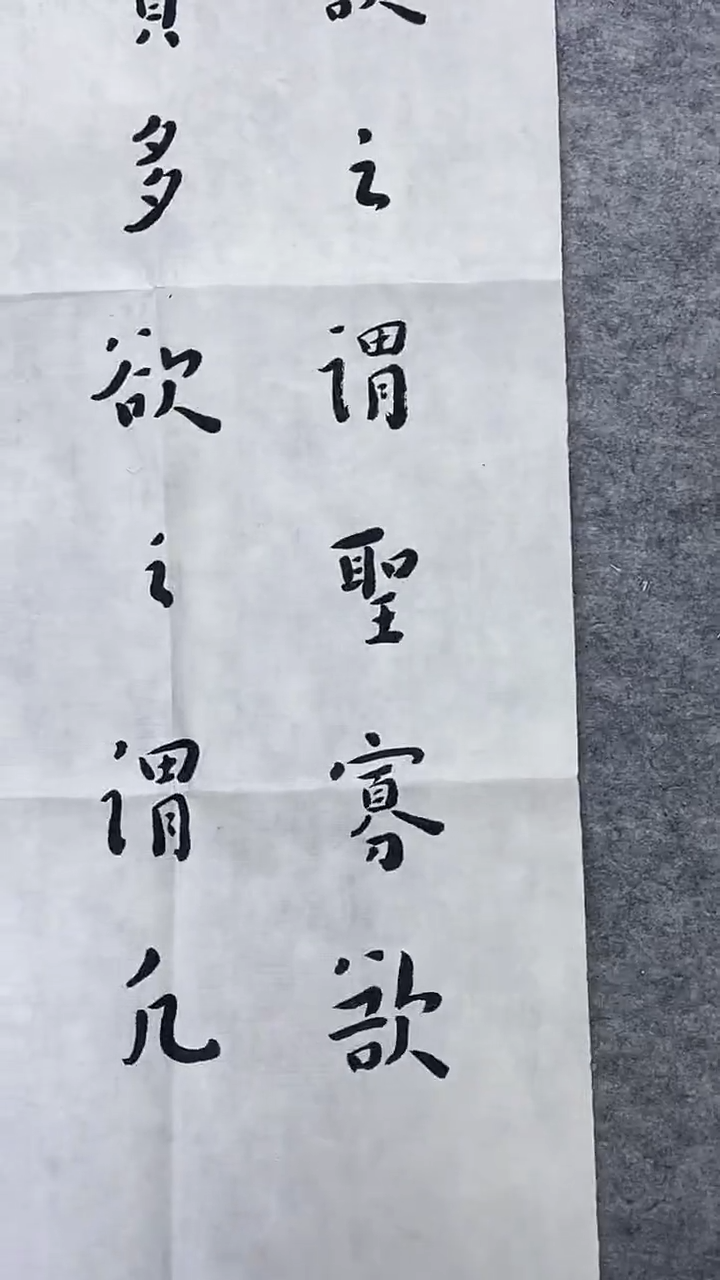 之谓聖寡欲
多欲之谓凡